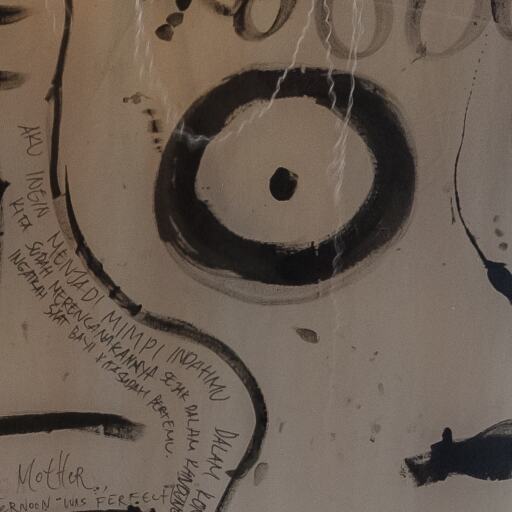 AKU INGIN MENJADI MIMPI INDAHMU DALAM
KITA SUDAH MERENCANAKANNYA SEJAK DALAM
INGATKAH SAAT BAYI KITA SUDAH BERTEMU.
MOTHER,
WAS PERFECT